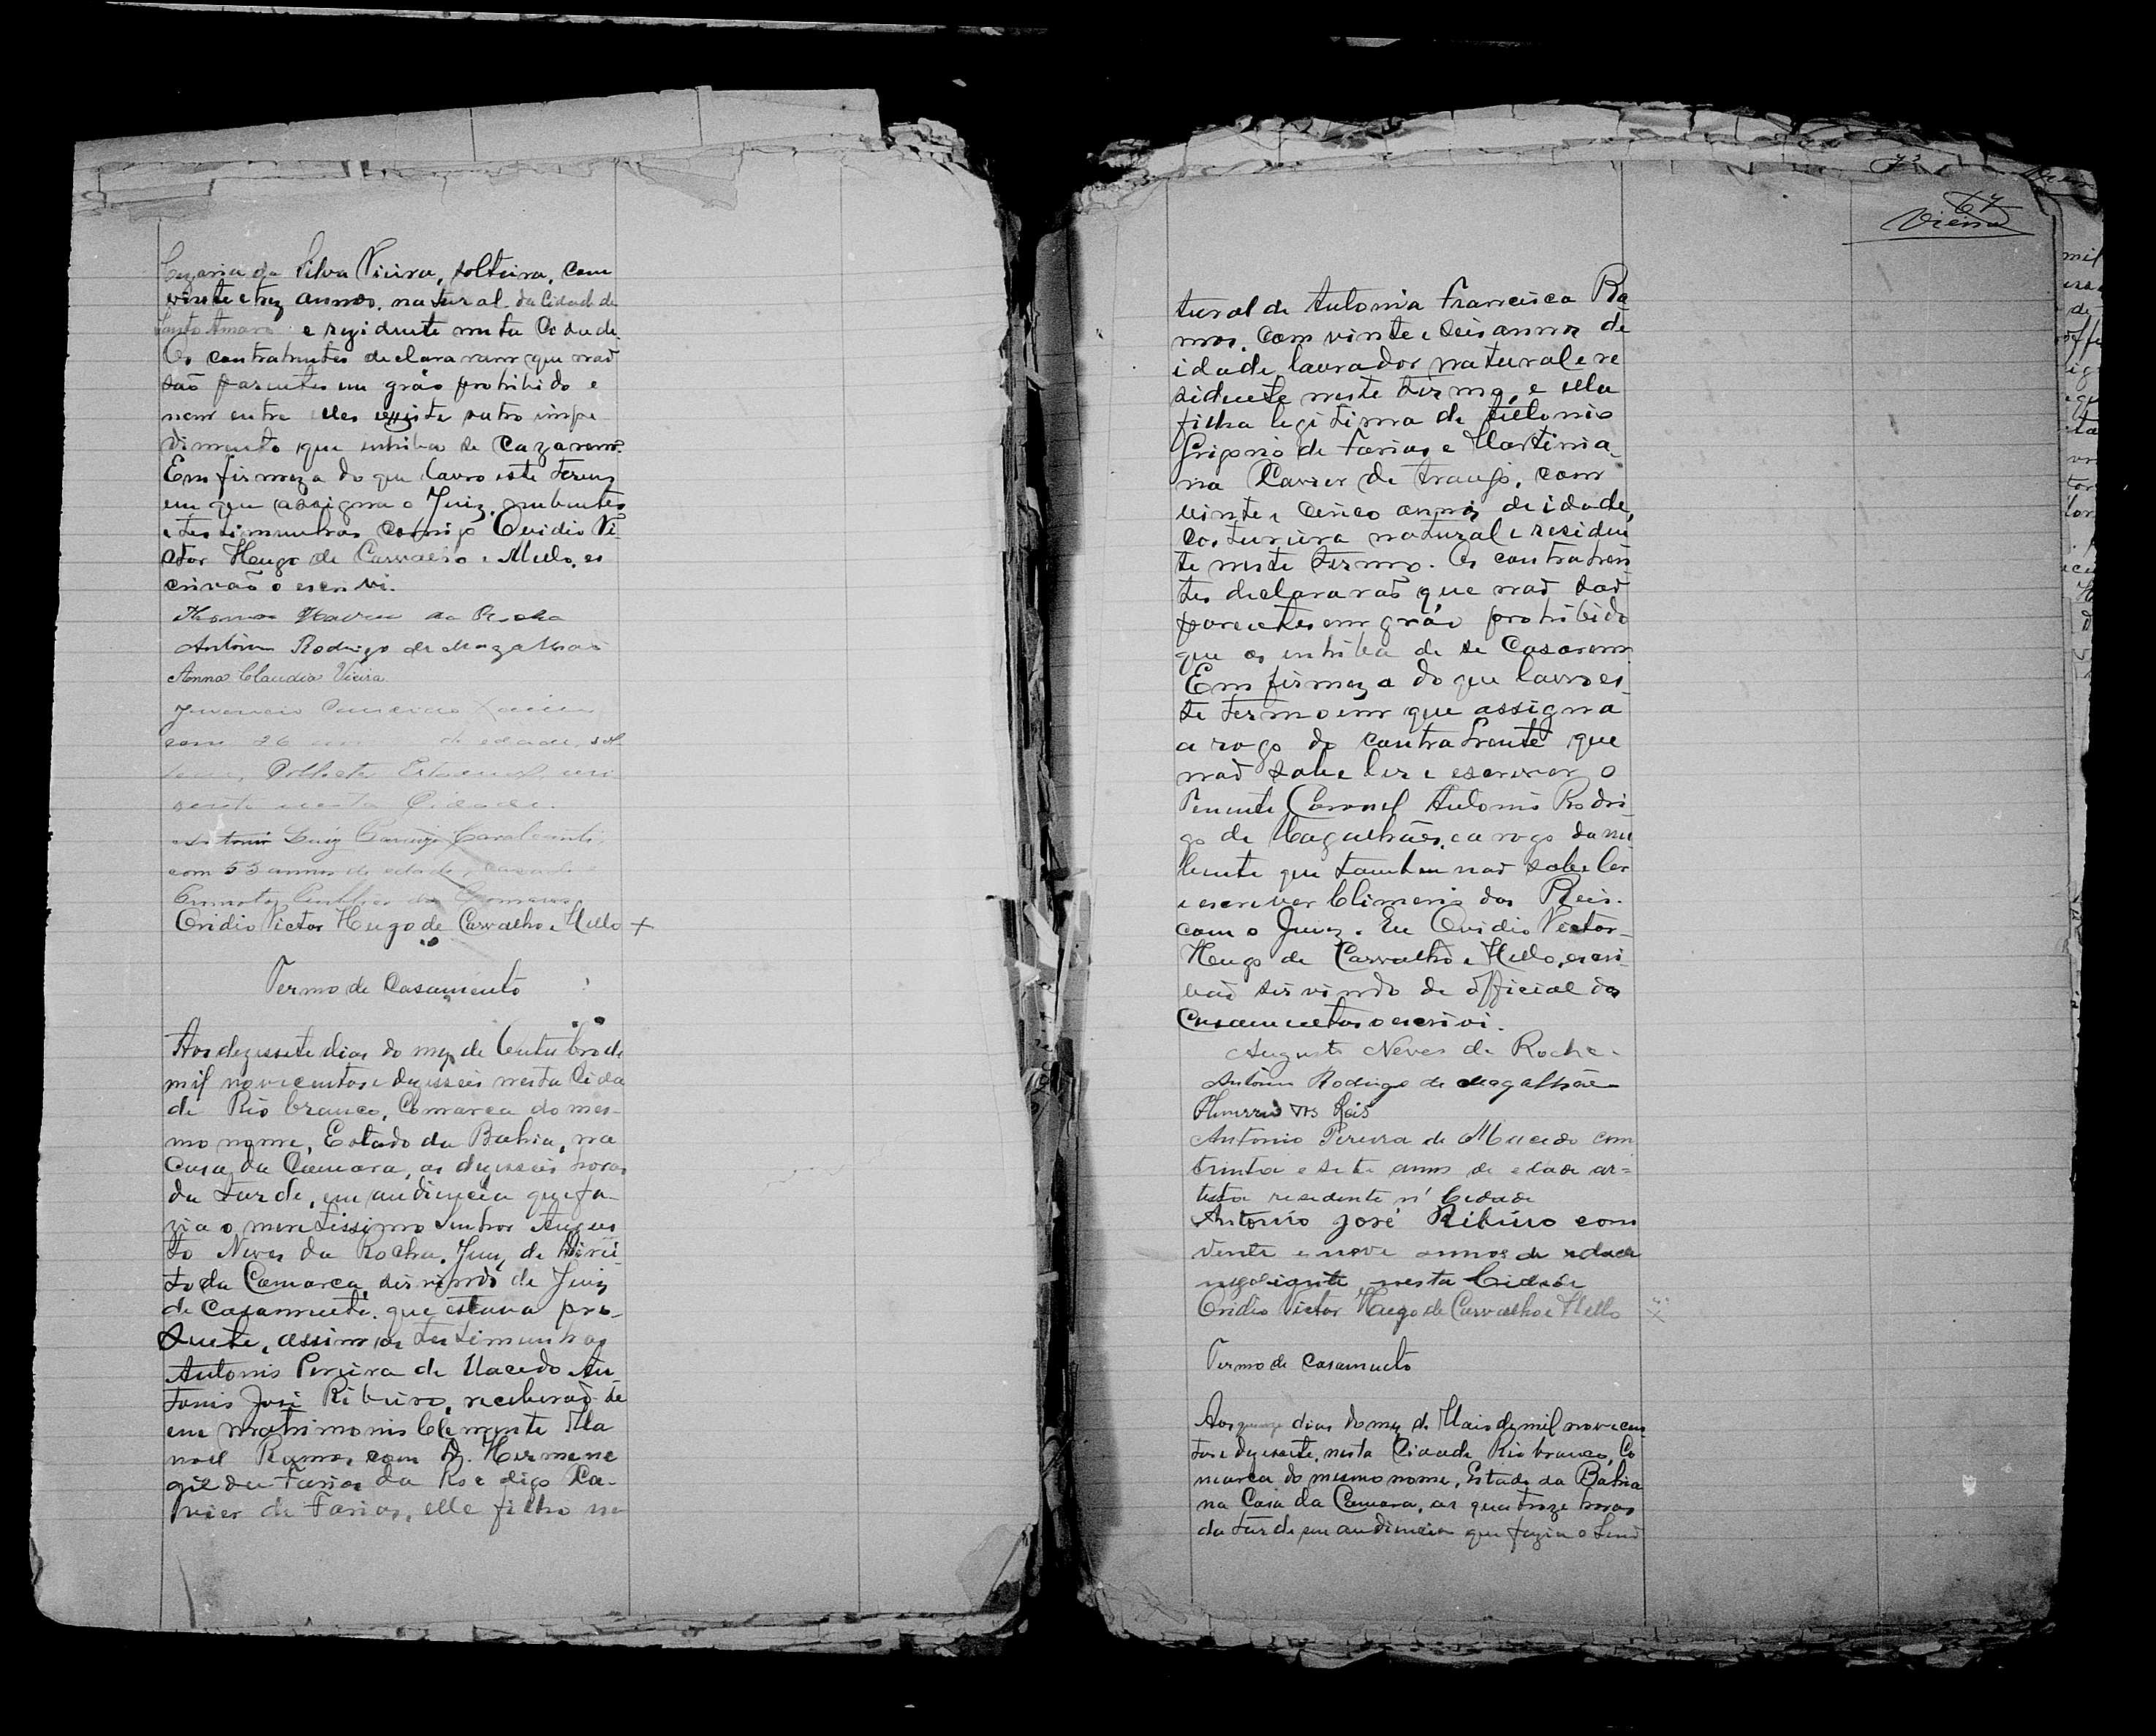 Cezaria da Silva Vieira, solteira, com
vinte e trez annos, natural da Cidade de
Santo Amaro e rezidente nesta Cidade.
Os contrahentes declararam que naõ
saõ parentes em gráo prohibido e
nem entre elles existe outro impe
dimento que inhiba se cazarem.
Em firmeza do que lavro este termo
em que assigna o Juiz, nubentes
e testimunhas comigo Ovidio Vi
ctor Hugo de Carvalho e Mello, es
crivaõ o escrivi.
Neves da Rocha
Antonio Rodrigo de Magalhães
Anna Claudia Vieira
com 26 de edade, sol
dente nesta Cidade.
Antonio Luiz Cavalcanti,
com 53 annos de edade, casado
Ovidio Victor Hugo de Carvalho e Mello +
Termo de Casamento
Aos dezessete dias do mez de Outubro de
mil novecentos e dezesseis nesta Cida
de Rio branco, Comarca do mes-
mo nome, Estado da Bahia, na
Casa da Camara, as dezesseis horas
da tarde, em audiencia que fa-
zia o meretissimo Senhor Augus
to Neves da Rocha, Juiz de Direi-
to da Comarca, servindo de Juiz
de Casamento, que estava pre-
sente, assim as testimunhas
Antonio Pereira de Macedo An-
tonio José Ribeiro, receberaõ-se
em matrimonio Clemente Ma
noel Ramos com D. Hermene
gilda Farias da Ro e digo Ca-
vier de Farias, elle filho na
67
Vieira
tural de Antonia Francisca Ra
mos, com vinte e seis annos de
idade, lavrador, natural e re
sidente neste termo, e ella
filha legitima de Antonio
Grigorio de Farias e Martinia-
na Cavier de Araujo, com
vinte e cinco annos de idade,
costureira natural e residen
te neste termo. Os contrahen
tes declararaõ que naõ saõ
parentes em gráo prohibido
que os inhiba de se Casarem.
Em firmeza do que lavro es-
te termo em que assigna
a rogo do contrahente que
naõ sabe ler e escrever o
Tenente Coronel Antonio Rodri-
go de Magalhães, e a rogo da nu
bente que tambem naõ sabe ler
e escrever Climerio dos Reis.
com o Juiz. Eu Ovidio Victor-
Hugo de Carvalho e Mello, escri-
vaõ servindo de official dos
Casamentos o escrivi.
Augusto Neves da Rocha.
Antonio Rodrigo de Magalhães
Climerio dos Reis
Antonio Pereira de Macedo com
trinta e sete annos de edade ar=
tista residente n' Cidade
Antonio José Ribeiro com
vente e nove annos de edade
negociante nesta Cidade
Ovidio Victor Hugo de Carvalho e Mello
Termo de Casamento
Aos quinze dias do mez de Maio de mil novecen-
tos e dezessete, nesta Cidade Rio branco, Co
marca do mesmo nome, Estado da Bahia
na Casa da Camara, as quatroze horas
da tarde em audiencia que fazia o Senõ